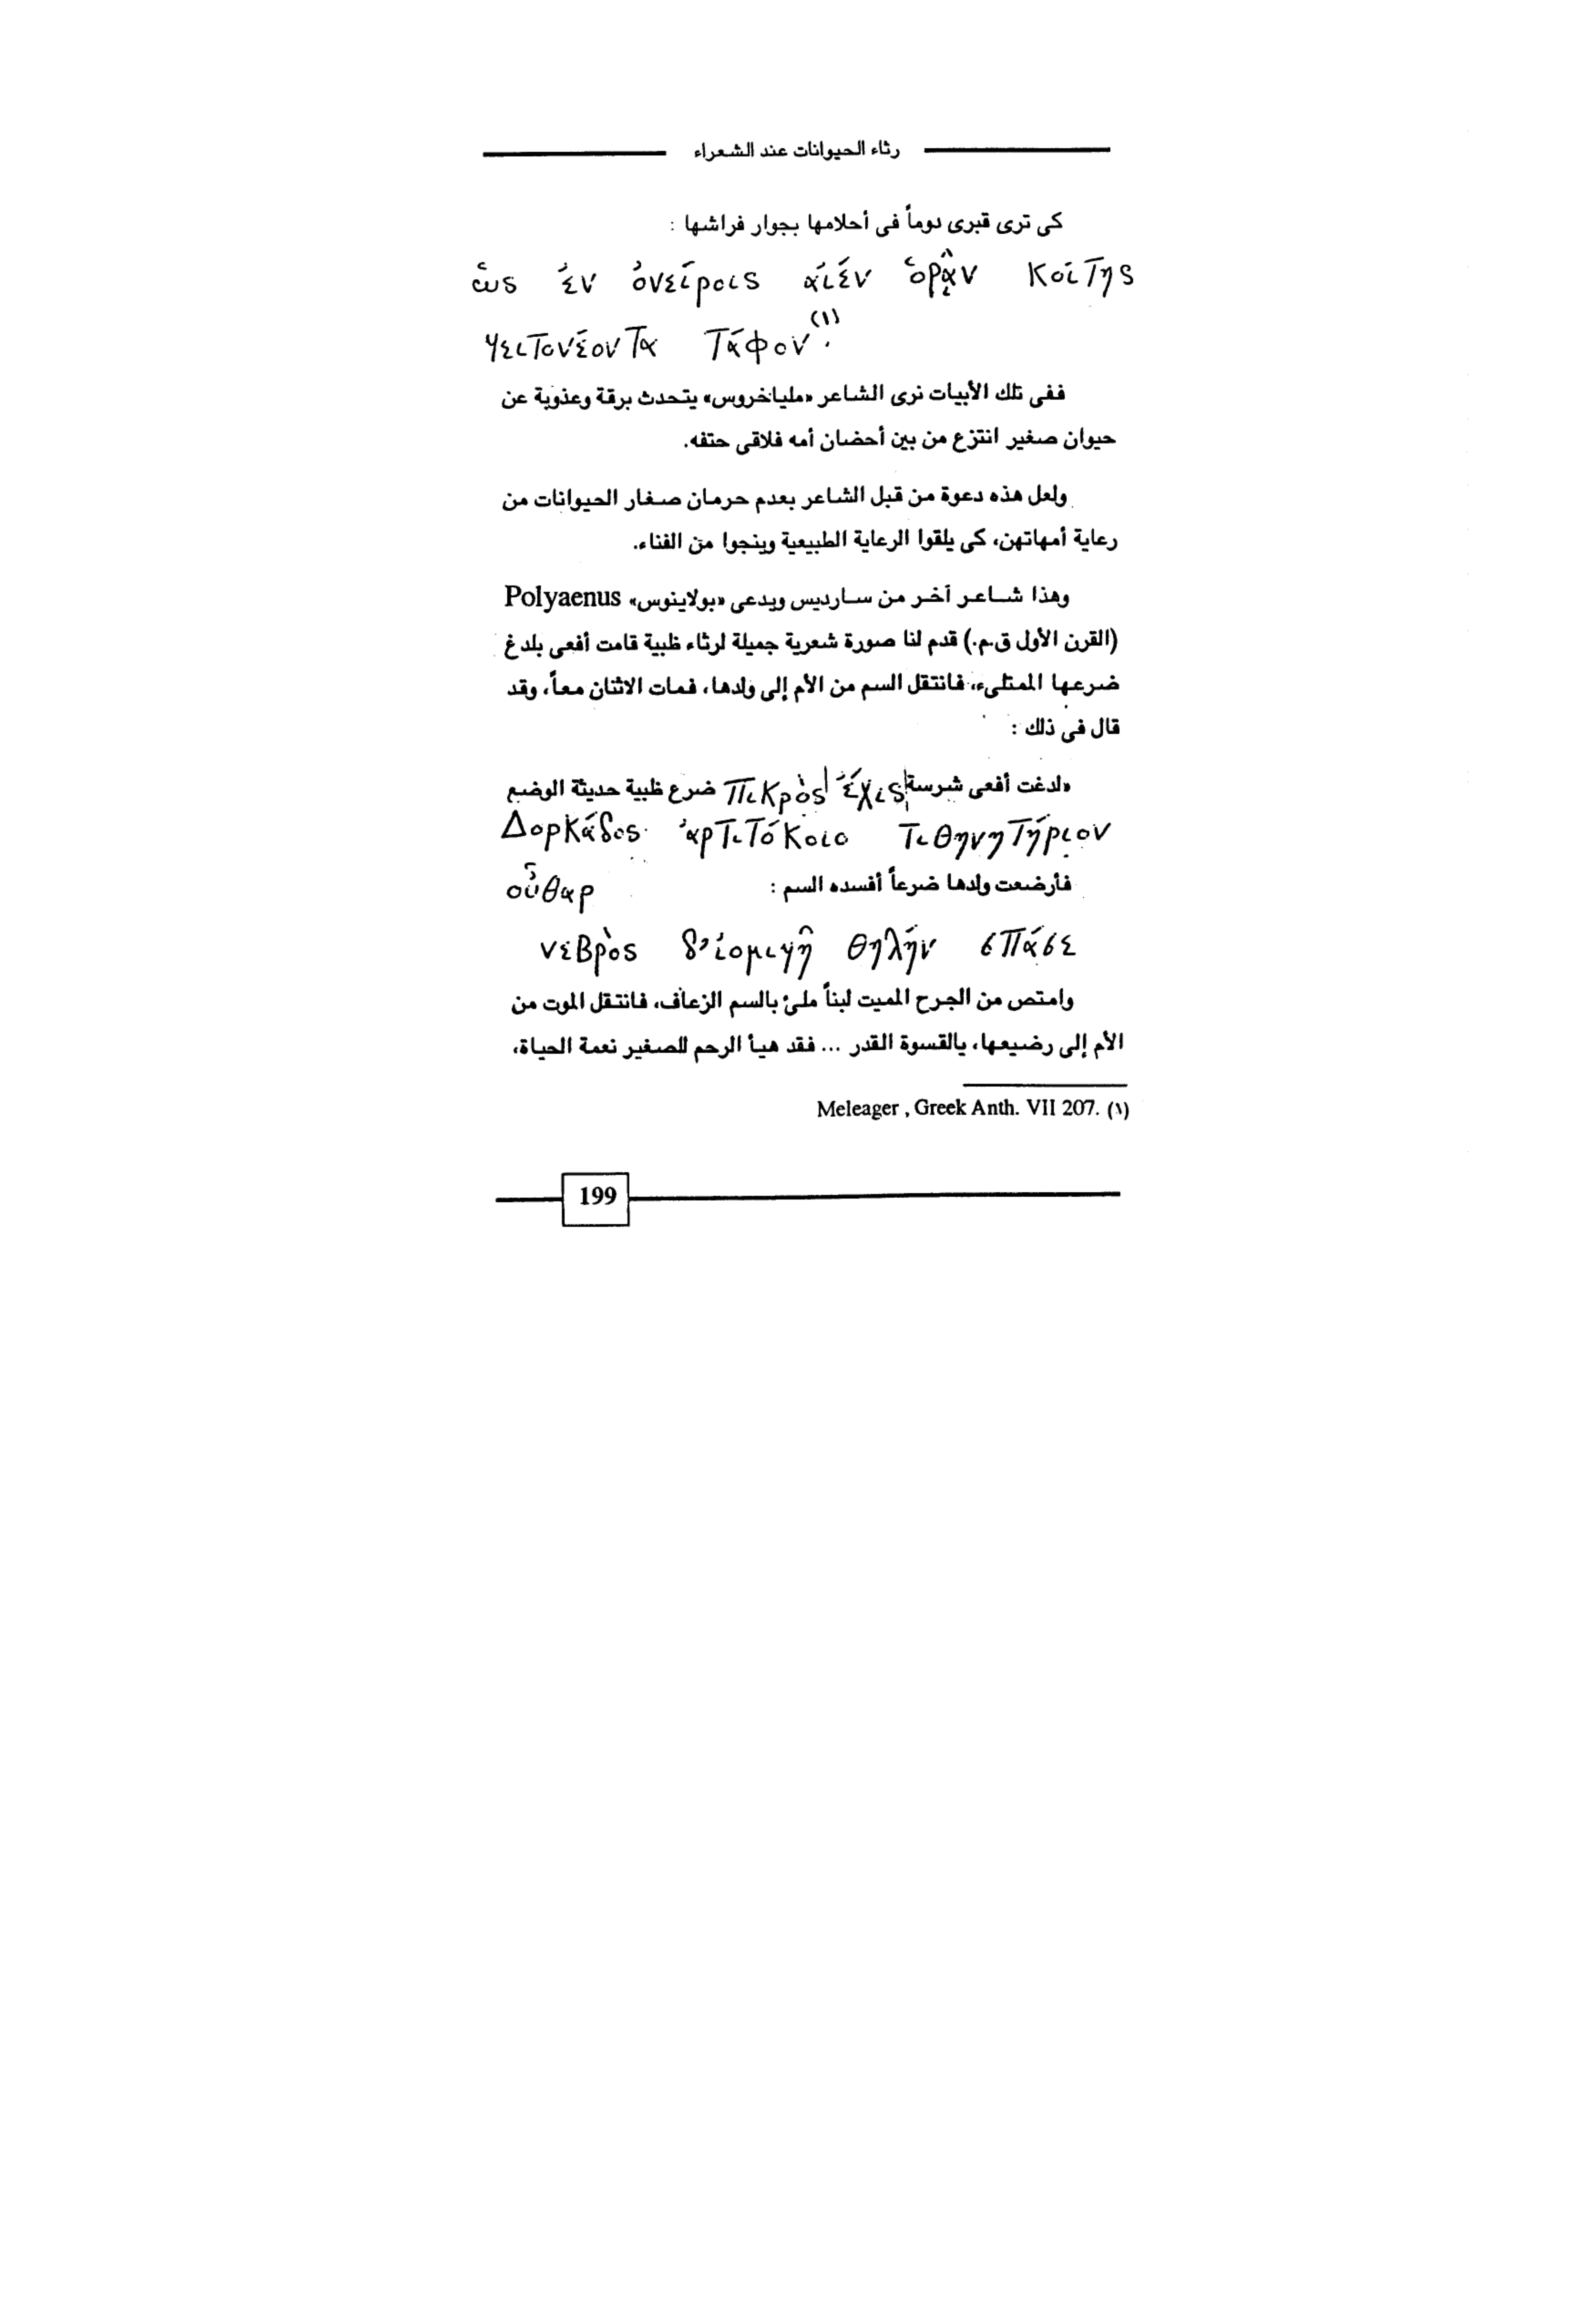 رثاء الحيوانات عند الشعراء
كى ترى قبرى دوماً فى أحلامها بجوار فراشها :
ὡς ἐν ὀνείροις αἰέν ὁρᾷν κοίτης
γειτονέοντα τάφον(١).
ففى تلك الأبيات نرى الشاعر «ملياخروس» يتحدث برقة وعذوبة عن
حيوان صغير انتزع من بين أحضان أمه فلاقى حتفه.
ولعل هذه دعوة من قبل الشاعر بعدم حرمان صغار الحيوانات من
رعاية أمهاتهن، كى يلقوا الرعاية الطبيعية وينجوا من الفناء.
وهذا شاعر آخر من سارديس ويدعى «بولاينوس» Polyaenus
(القرن الأول ق.م.) قدم لنا صورة شعرية جميلة لرثاء ظبية قامت أفعى بلدغ
ضرعها الممتلىء، فانتقل السم من الأم إلى ولدها، فمات الاثنان معاً، وقد
قال فى ذلك :
«لدغت أفعى شرسة πικρὸς ἔχις ضرع ظبية حديثة الوضع
Δορκάδος ἀρτιτόκοιο τιθηνητήριον
οὖθαρ
فأرضعت ولدها ضرعاً أفسده السم :
νεβρὸς δ’ἰομιγῆ θηλήν σπάσε
وامتص من الجرح المميت لبناً ملئ بالسم الزعاف، فانتقل الموت من
الأم إلى رضيعها، يالقسوة القدر ... فقد هيأ الرحم للصغير نعمة الحياة،
(١) Meleager , Greek Anth. VII 207.
199